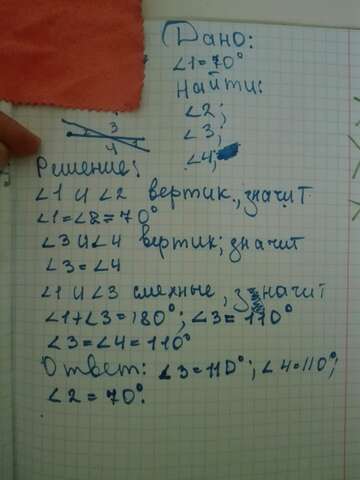 Дано:
∠1=70°
Найти:
∠2;
∠3;
∠4;
3
4
Решение:
∠1 и ∠2 вертик., значит
∠1=∠2=70°
∠3 и ∠4 вертик; значит
∠3=∠4
∠1 и ∠3 смежные, значит
∠1+∠3=180°; ∠3=110°
∠3=∠4=110°
Ответ: ∠3=110°; ∠4=110°;
∠2=70°.